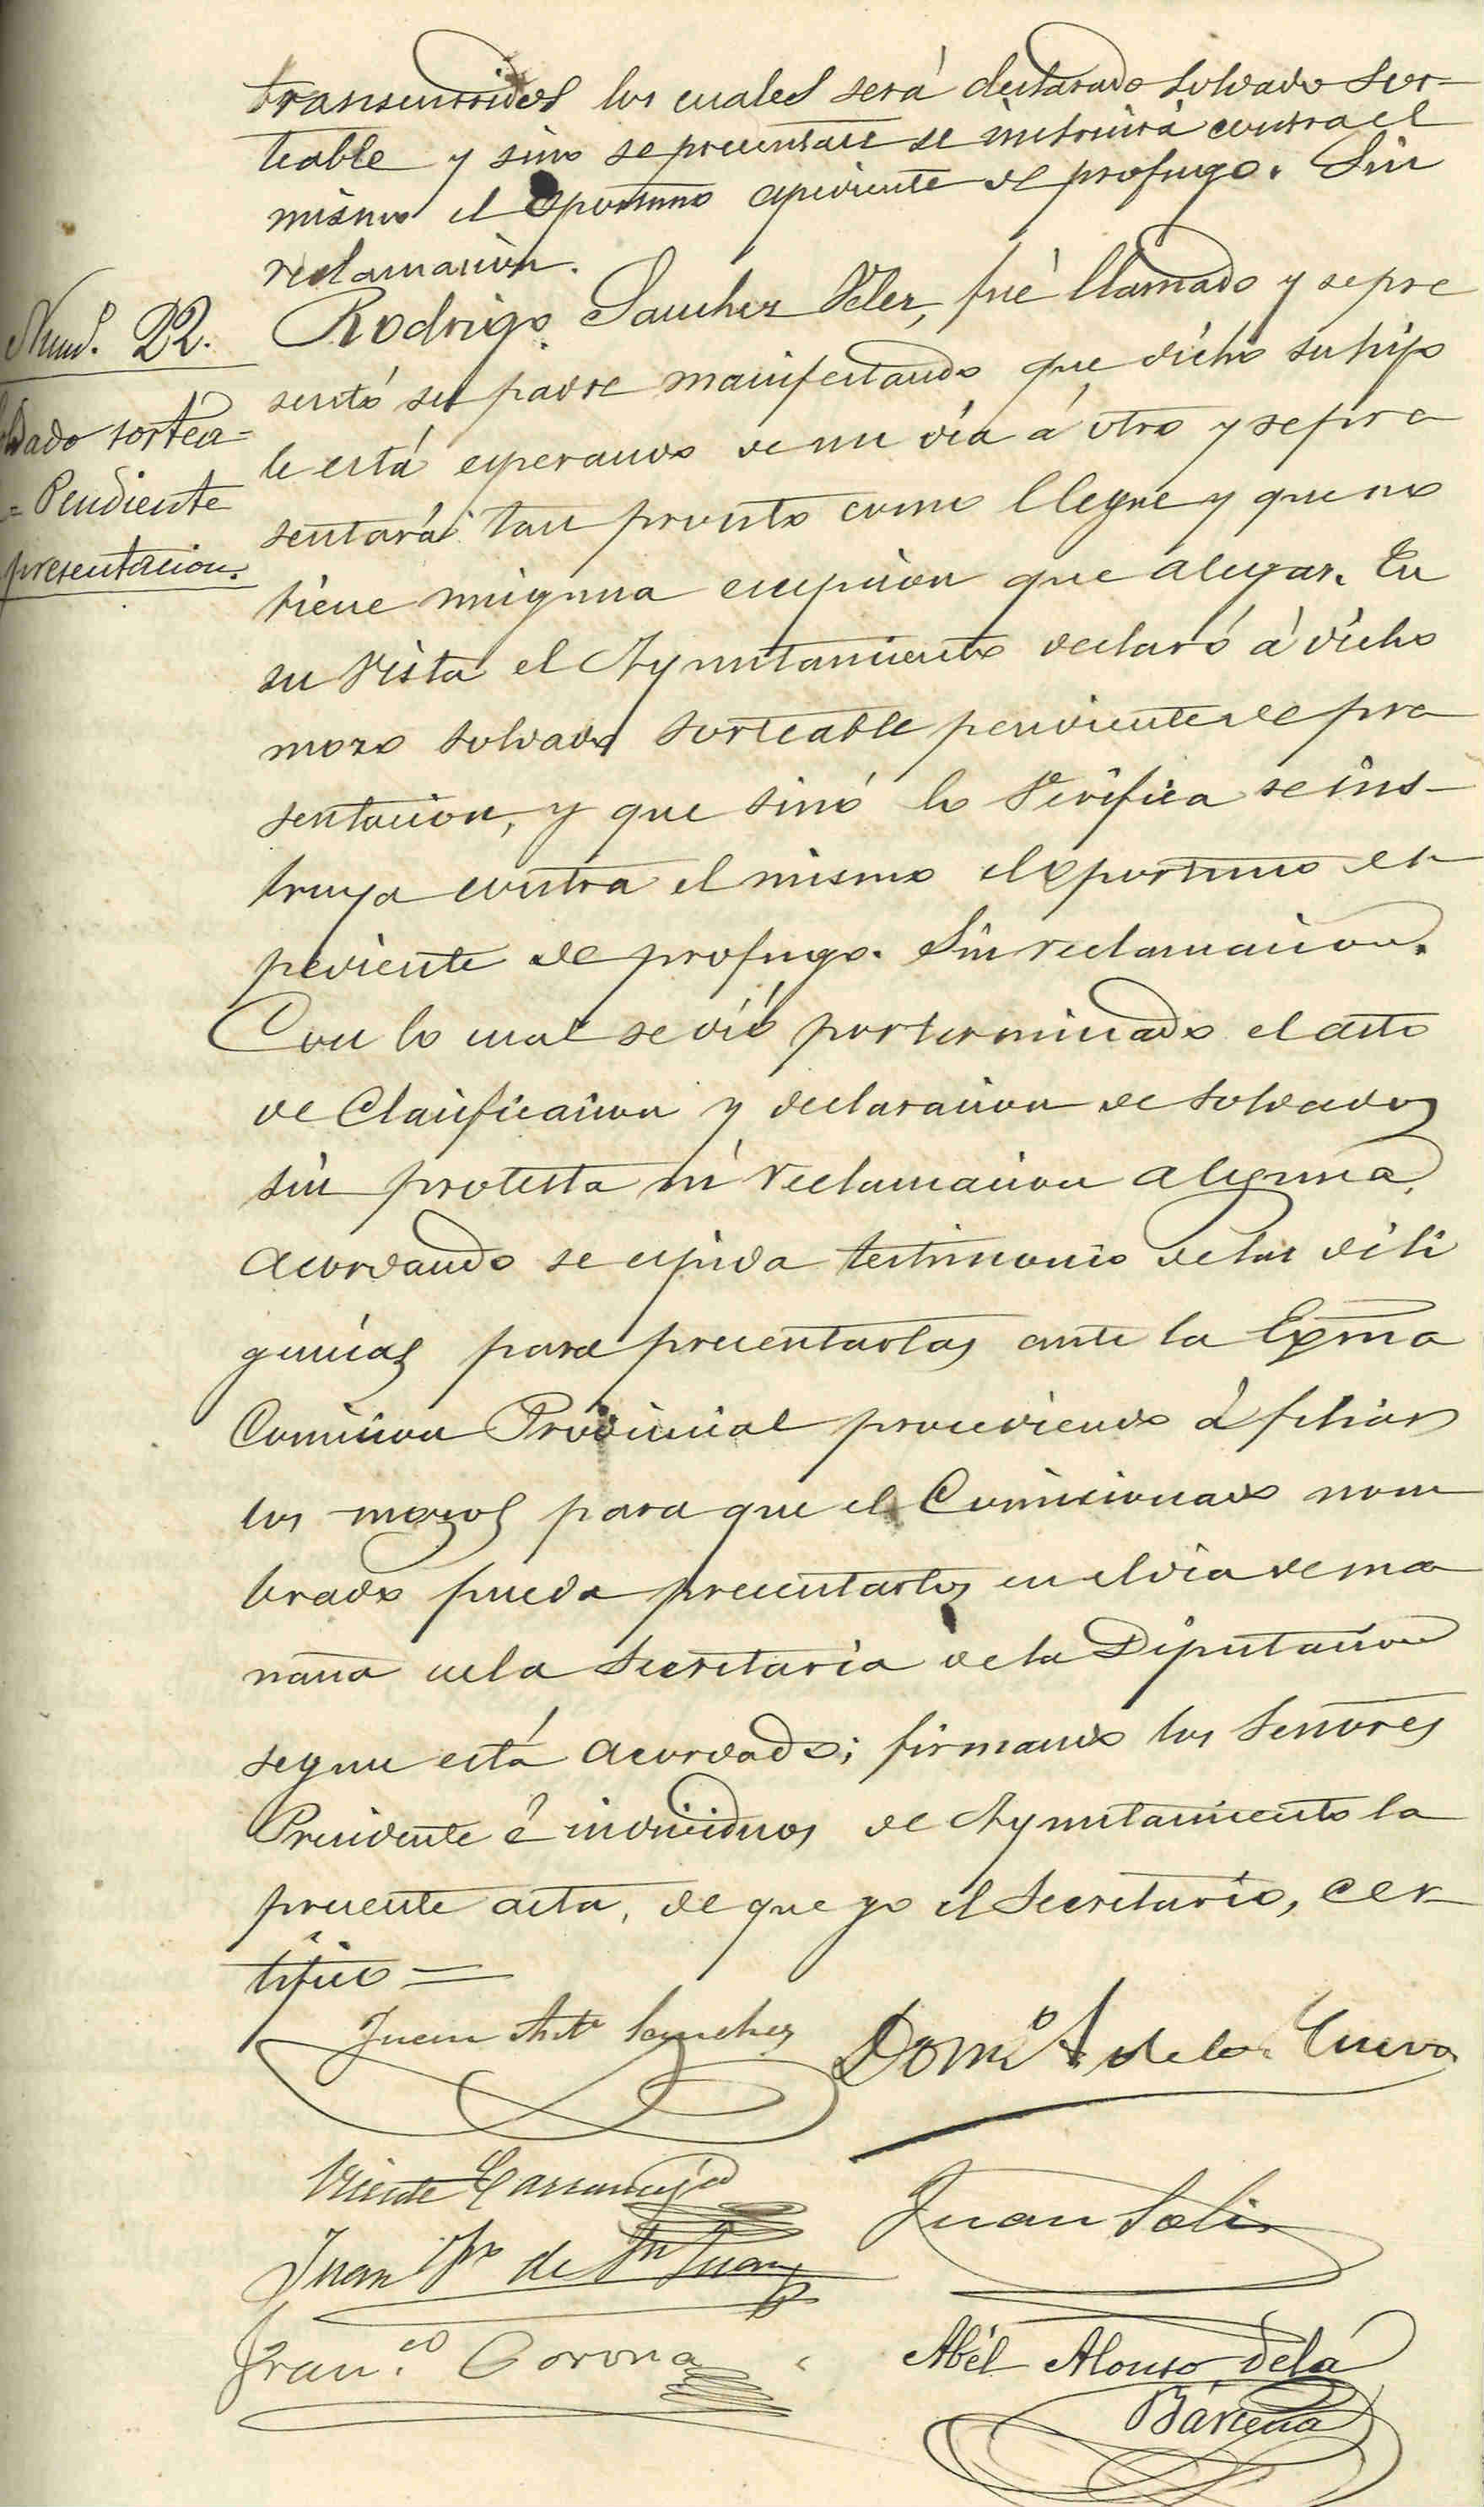 transcurridos los cuales será declarado soldado sor-
teable y sino se presentase se instruirá contra el
mismo el oportuno espediente de profugo. Sin
reclamacion.
Num.º 22.
Rodrigo Sanchez Velez, fué llamado y se pre
sentó su padre manifestando que dicho su hijo
le está esperando de un día á otro y se pre
sentará tan pronto como llegue y que no
tiene ninguna escepcion que alegar. En
su vista el Ayuntamiento declaró á dicho
mozo soldado sorteable pendiente de pre
sentacion, y que sinó lo verifica se ins-
truya contra el mismo el oportuno es
pediente de profugo. Sin reclamacion.
ldado sortea=
= Pendiente
presentacion.
Con lo cual se dió por terminado el acto
de Clasificacion y declaracion de soldados
sin protesta ni reclamacion alguna,
acordando se espida testimonio de las dili
gencias para presentarlas ante la Exma
Comision Provincial procediendo á filiar
los mozos para que el Comisionado nom
brado pueda presentarlos en el dia de ma
ñana en la Secretaria de la Diputacion
segun está acordado; firmando los Señores
Presidente é individuos de Ayuntamiento la
presente acta, de que yo el Secretario, cer-
tifico =
Juan Antº Sanchez
Domº A de la Cueva
Vicente
Juan de Sn Juan
Juan Solis
Franco. Corona
Abél Alonso de la
Bárcena